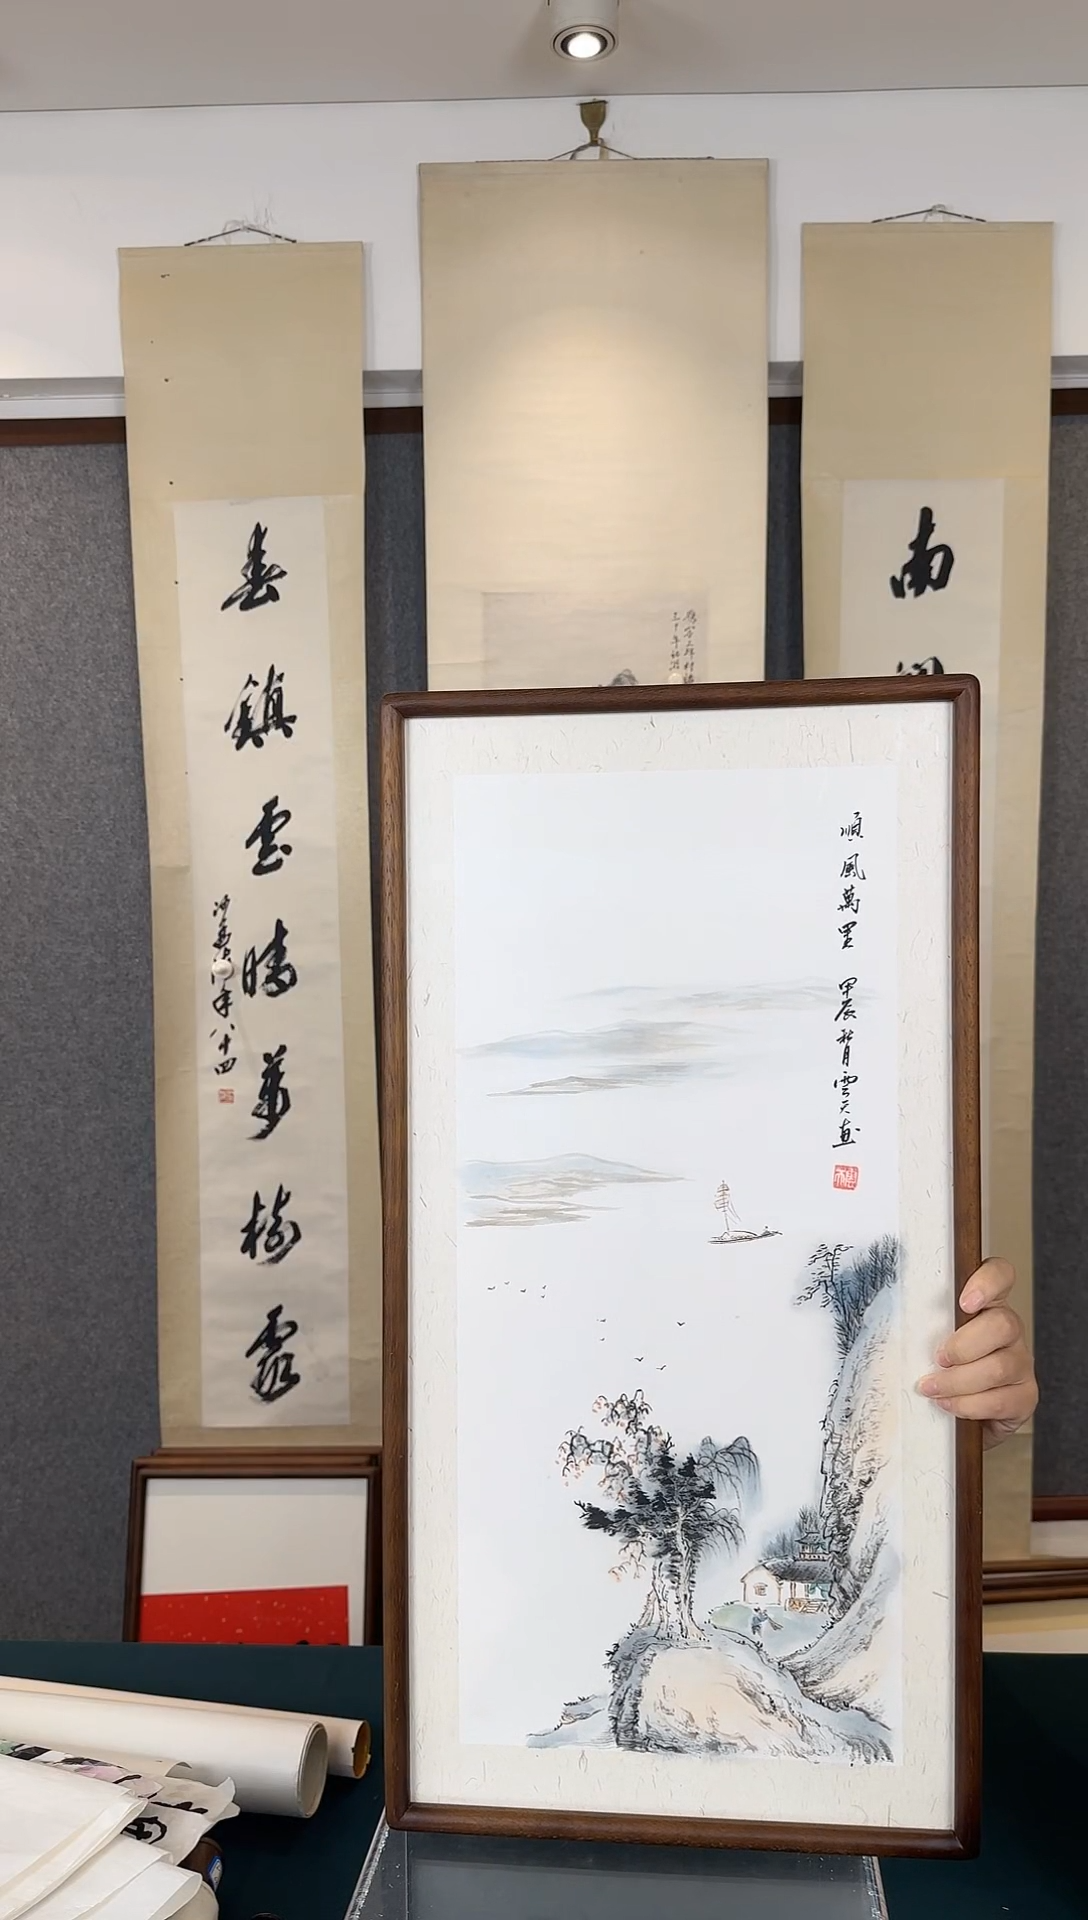 順風萬里 甲辰秋月雲天畫
南
春鎮雲晴萬樹霞
沙孟海年八十四